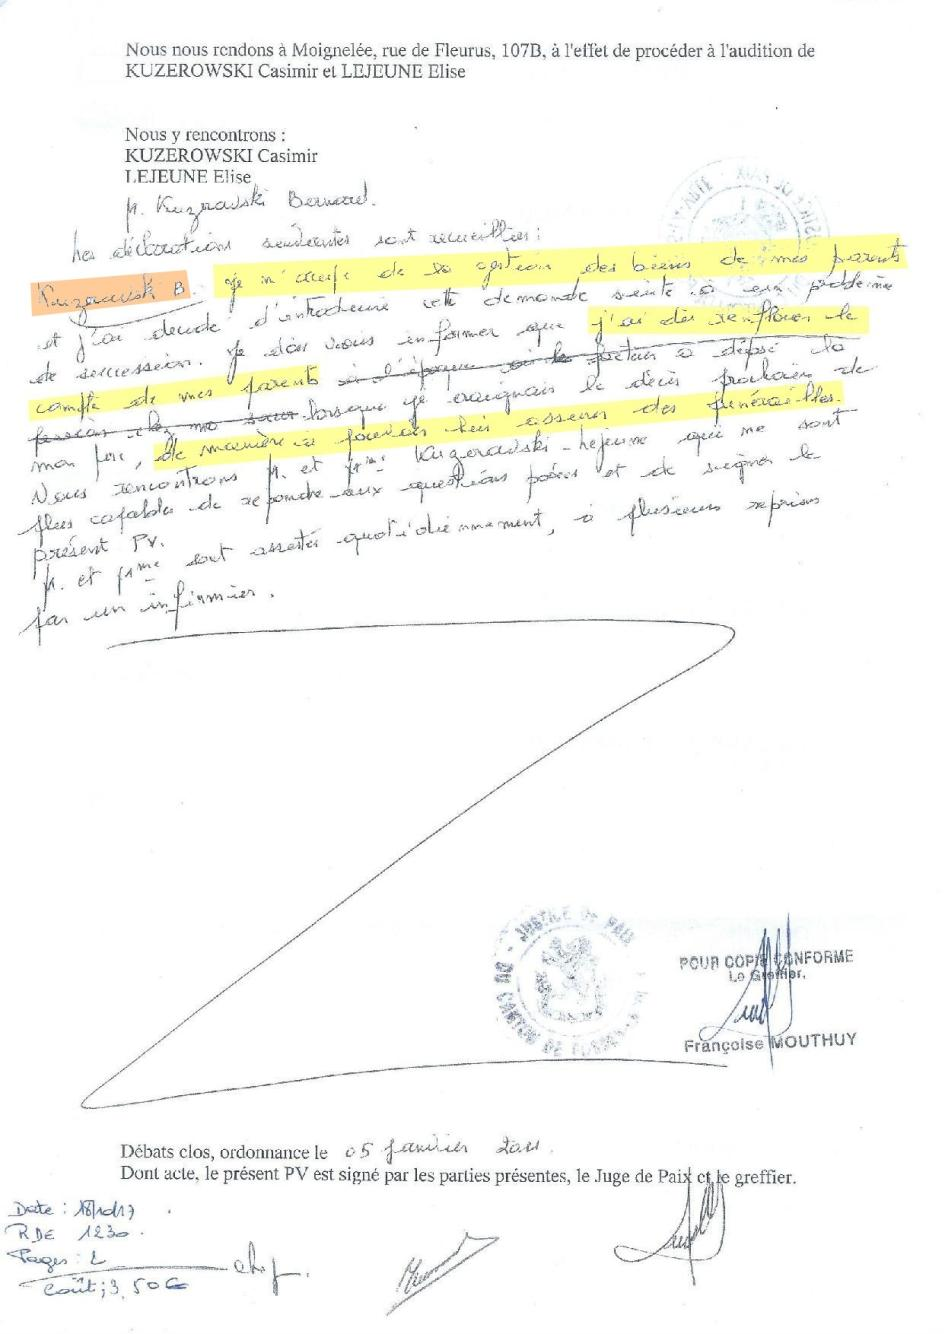 Nous nous rendons à Moignelée, rue de Fleurus, 107B, à l'effet de procéder à l'audition de
KUZEROWSKI Casimir et LEJEUNE Elise
Nous y rencontrons :
KUZEROWSKI Casimir
LEJEUNE Elise
M. Kuzerowski Bernard.
Les déclarations suivantes sont recueillies :
Kuzerowski B. Je m'occupe de la gestion des biens de mes parents
et j'ai décidé d'introduire cette demande suite à un problème
de succession. Je dois vous informer que j'ai dû renflouer le
compte de mes parents à l'époque où le facteur a déposé la
pension chez ma sœur lorsque je craignais le décès prochain de
mon père, de manière à pouvoir leur assurer des funérailles.
Nous rencontrons M. et Mme Kuzerowski-Lejeune qui ne sont
plus capables de répondre aux questions posées et de signer le
présent PV.
M. et Mme sont assistés quotidiennement, à plusieurs reprises
par un infirmier.
JUSTICE DE PAIX
DU CANTON DE
POUR COPIE CONFORME
Le Greffier,
Françoise MOUTHUY
Débats clos, ordonnance le 05 janvier 2011.
Dont acte, le présent PV est signé par les parties présentes, le Juge de Paix et le greffier.
Date : 18/10/17
RDE 1230
Pages : 2
Coût : 3,50€